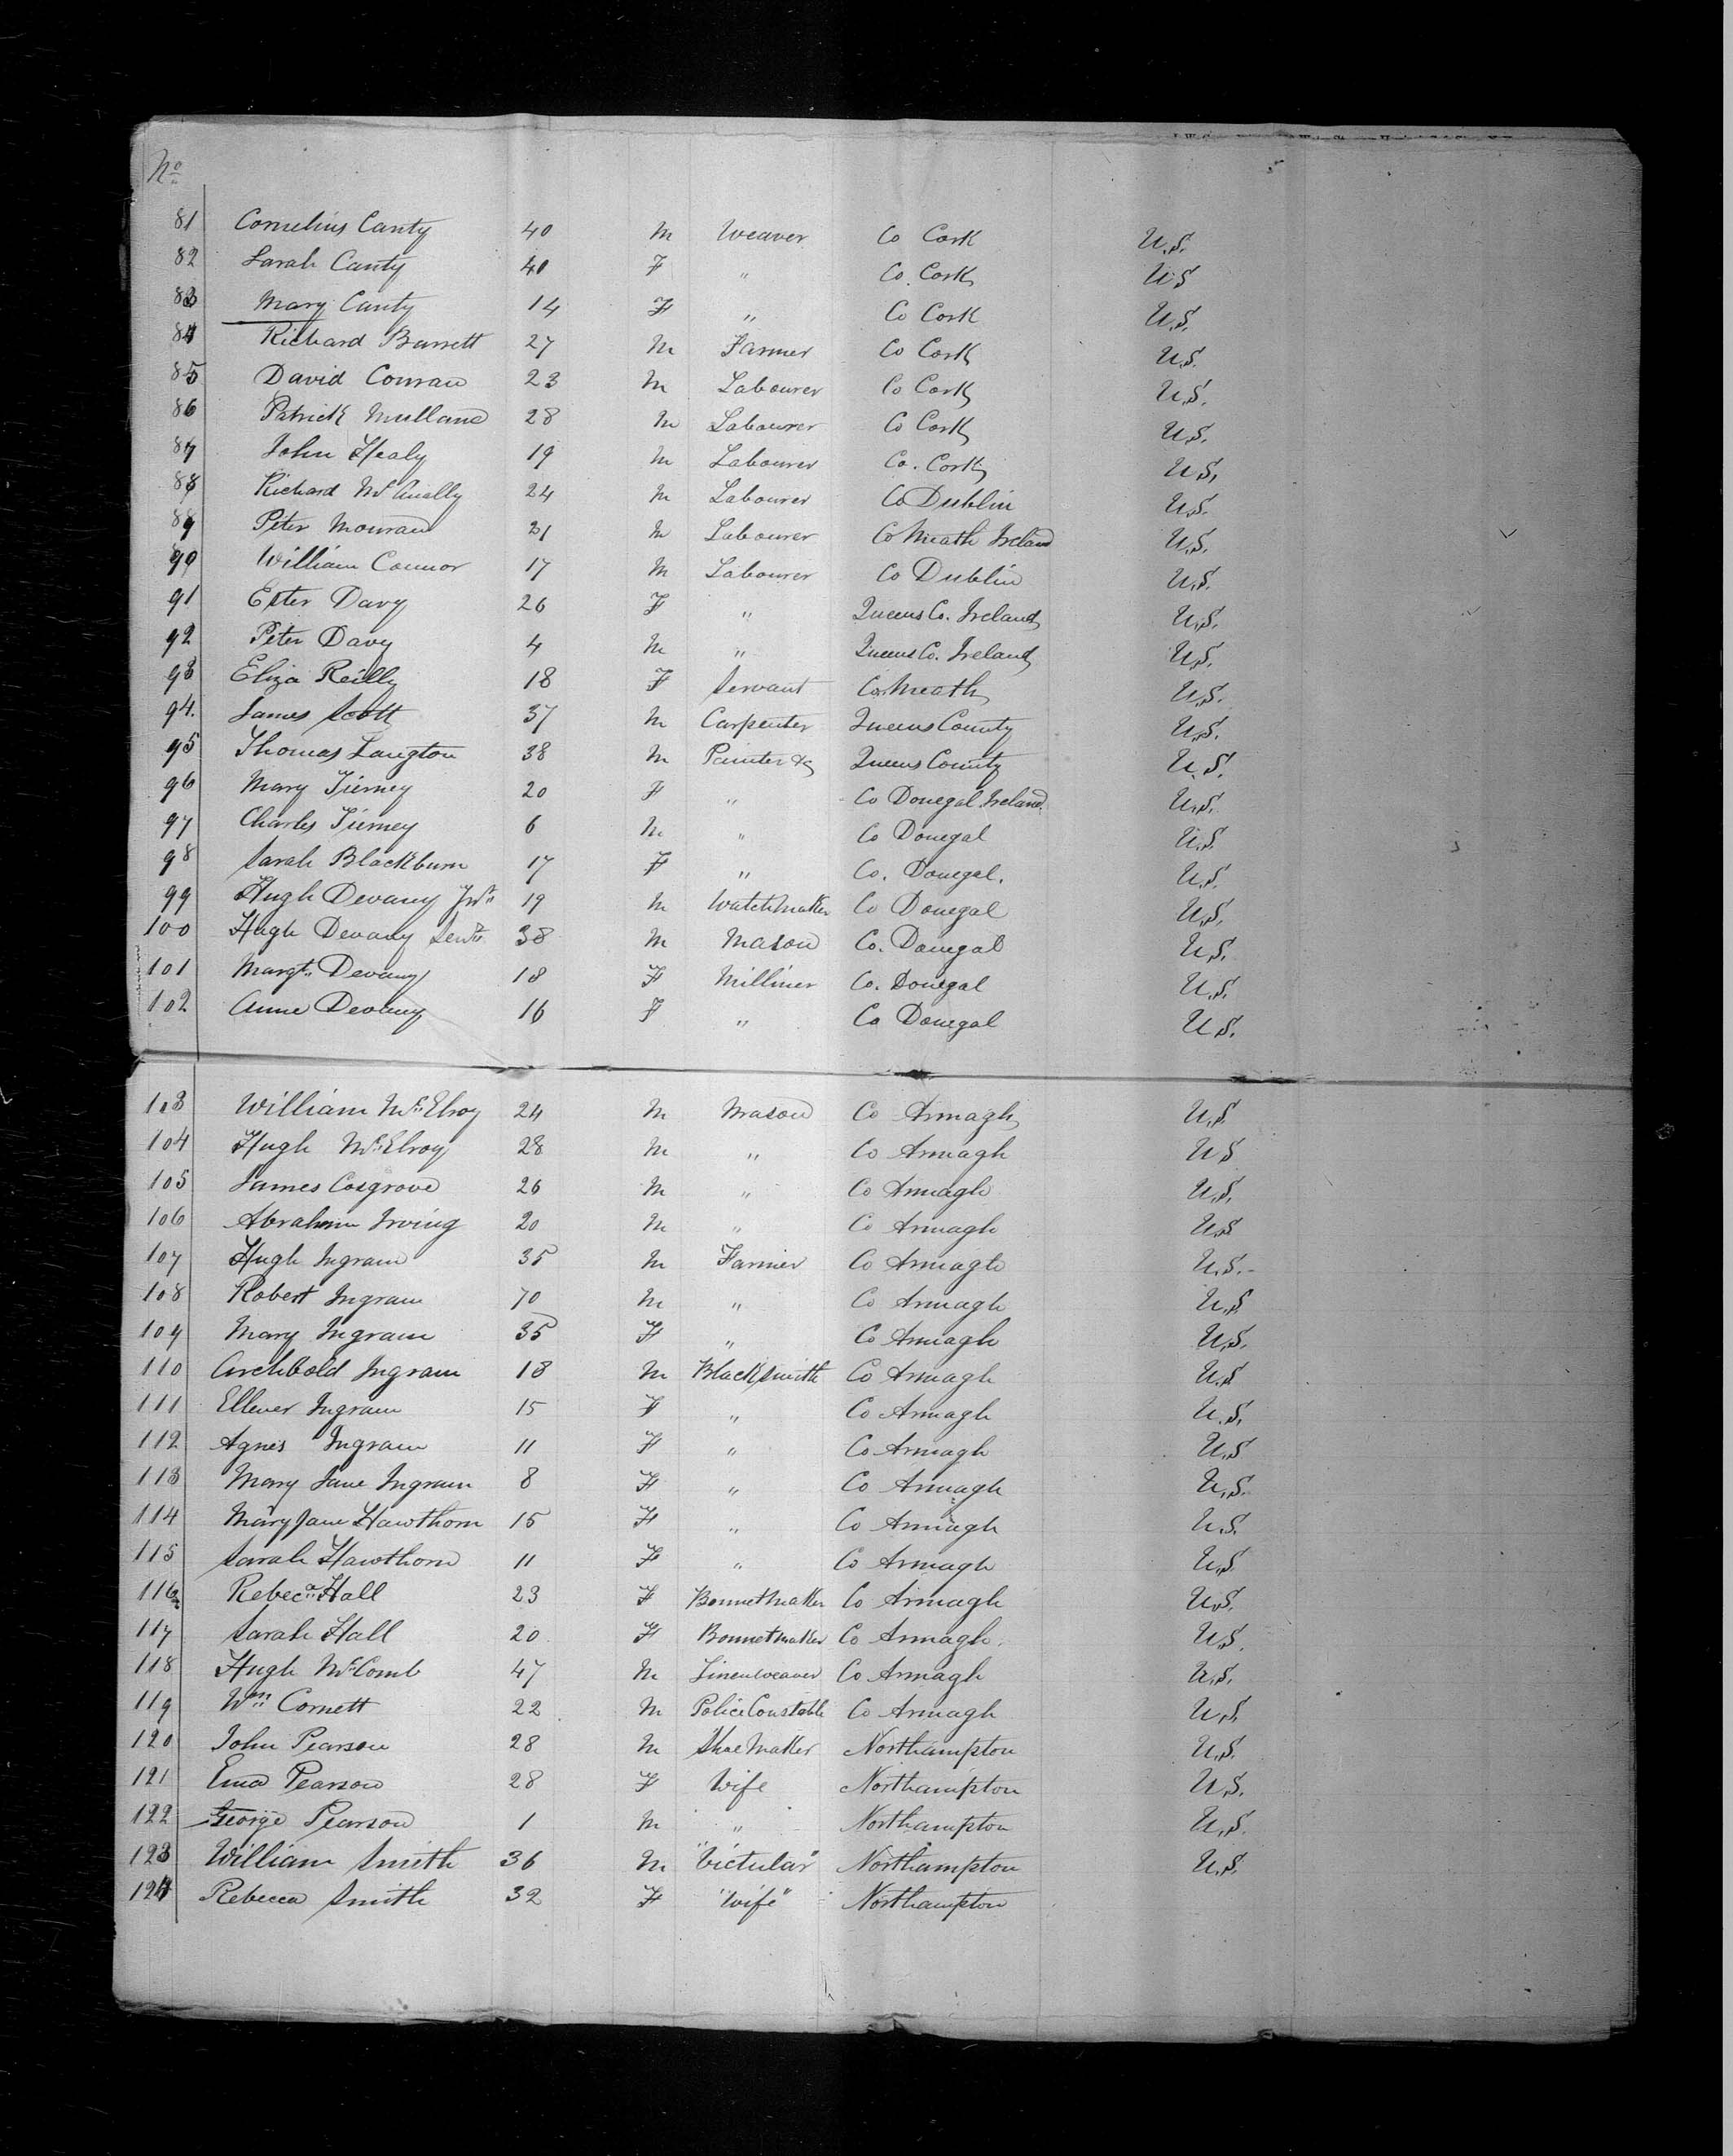 No
81 Cornelius Canty 40 M Weaver Co Cork U.S.
82 Sarah Canty 40 F " Co. Cork U.S
83 Mary Canty 14 F " Co Cork U.S.
84 Richard Barrett 27 M Farmer Co Cork U.S.
85 David Conran 23 M Labourer Co Cork U.S.
86 Patrick Mullane 28 M Labourer Co Cork U.S.
87 John Healy 19 M Labourer Co. Cork U.S,
88 Richard McAnally 24 M Labourer Co Dublin U.S.
89 Peter Mouran 21 M Labourer Co Meath Ireland U.S.
90 William Connor 17 M Labourer Co Dublin U.S.
91 Ester Davy 26 F " Queens Co. Ireland U.S.
92 Peter Davy 4 M " Queens Co. Ireland U.S.
93 Eliza Reilly 18 F Servant Co. Meath U.S.
94. James Scott 37 M Carpenter Queens County U.S.
95 Thomas Langton 38 M Painter &c Queens County U.S.
96 Mary Tierney 20 F " Co Donegal Ireland. U.S.
97 Charles Tierney 6 M " Co Donegal U.S
98 Sarah Blackburn 17 F " Co. Donegal. U.S.
99 Hugh Devany Junr 19 M Watchmaker Co Donegal U.S.
100 Hugh Devany Senr 38 M Mason Co. Donegal U.S.
101 Margt. Devany 18 F Milliner Co. Donegal U.S.
102 Anne Devany 16 F " Co Donegal U.S.
103 William McElroy 24 M Mason Co Armagh U.S
104 Hugh McElroy 28 M " Co Armagh U S
105 James Cosgrove 26 M " Co Armagh U.S.
106 Abraham Irving 20 M " Co Armagh U.S
107 Hugh Ingram 35 M Farmer Co Armagh U.S.-
108 Robert Ingram 70 M " Co Armagh U.S
109 Mary Ingram 35 F " Co Armagh U.S.
110 Archbold Ingram 18 M Blacksmith Co Armagh U.S
111 Ellener Ingram 15 F " Co Armagh U.S,
112 Agnes Ingram 11 F " Co Armagh U.S
113 Mary Jane Ingram 8 F " Co Armagh U.S.
114 Mary Jane Hawthorn 15 F " Co Armagh U.S.
115 Sarah Hawthorn 11 F " Co Armagh U.S
116 Rebeca Hall 23 F Bonnetmaker Co Armagh U.S.
117 Sarah Hall 20 F Bonnetmaker Co Armagh. U.S.
118 Hugh McComb 47 M Linenweaver Co Armagh U.S.
119 Wm Cornett 22 M Police Constable Co Armagh U.S,
120 John Pearson 28 M Shoe Maker Northampton U.S.
121 Ema Pearson 28 F Wife Northampton U.S.
122 George Pearson 1 M " Northampton U.S.
123 William Smith 36 M "Victular" Northampton U.S.
124 Rebecca Smith 32 F "Wife" Northampton